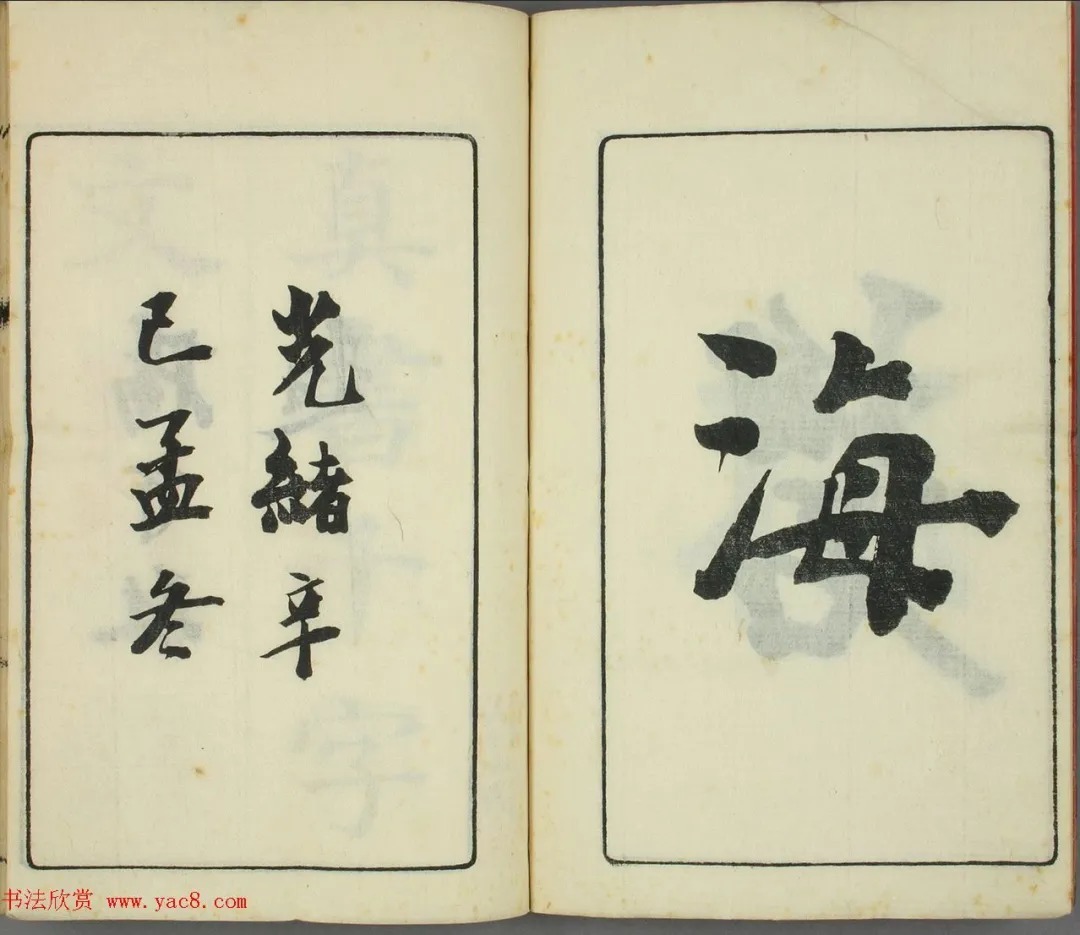 海
光緒辛
巳孟冬
书法欣赏 www.yac8.com